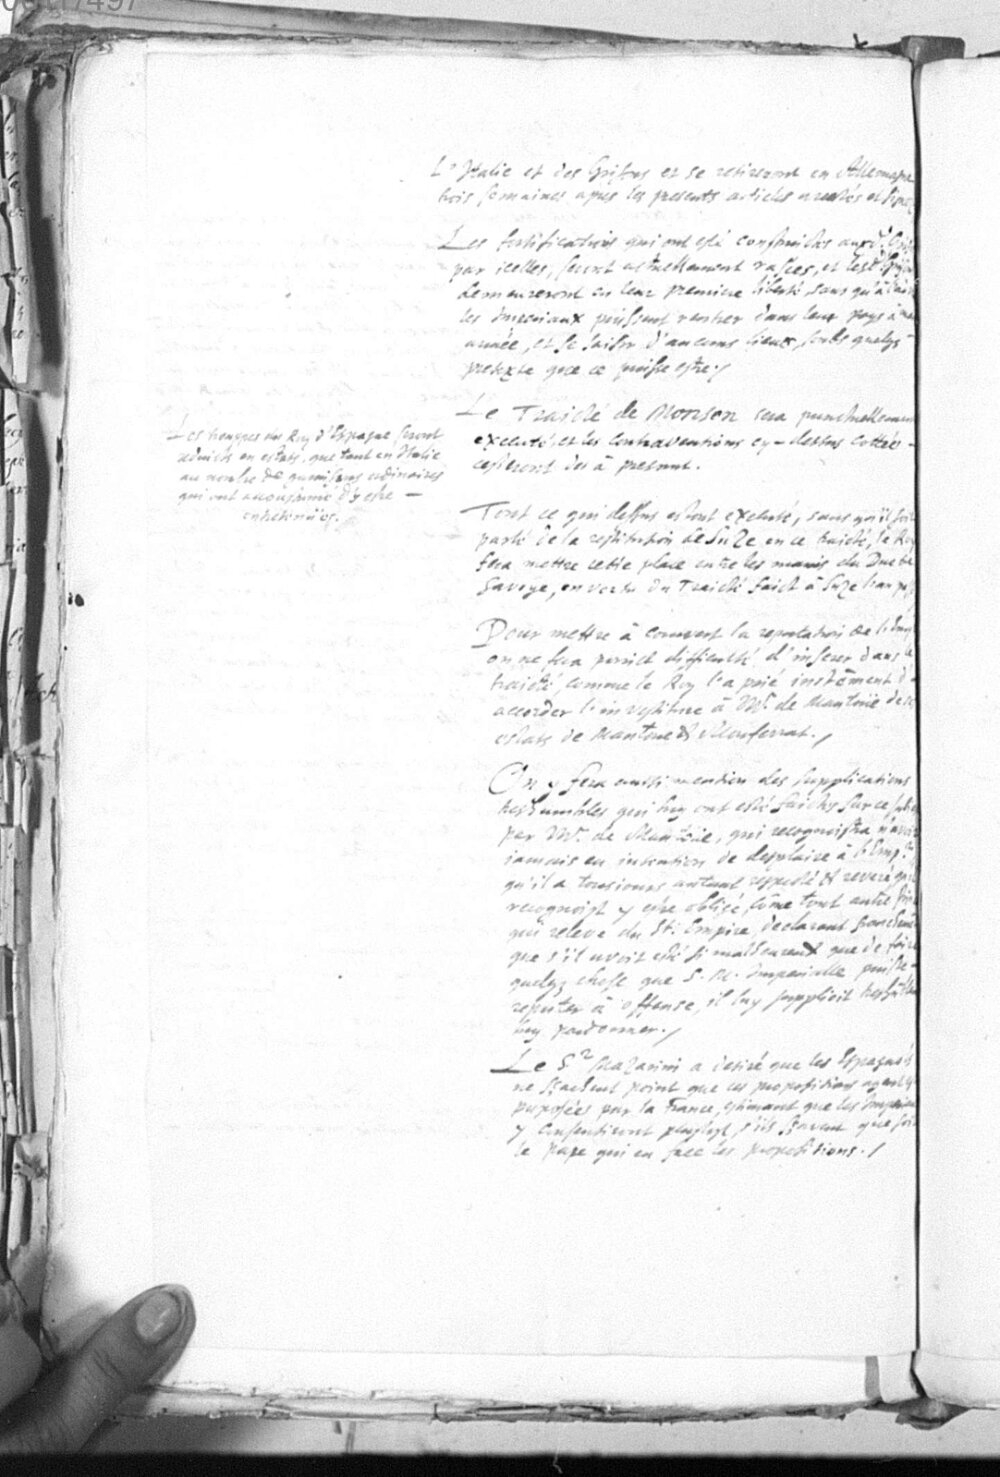 L'Italie et des Grisons et se retireront en Allemagne
trois semaines apres les presents articles arrestés et signez
Les fortifications qui ont esté construites aux d. Grisons
par icelles, seront actuellement rasées, et lesd. Grisons
demeureront en leur premiere liberté, sans qu'à l'avenir
les Imperiaux puissent rentrer dans leur pays à main
armée, et se saisir d'aucuns lieux, soubs quelqz
pretexte que ce puisse estre./
Le Traicté de Monson sera punctuellement
executé, et les contraventions cy-dessus cottées
cesseront des à present.
Les trouppes du Roy d'Espagne seront
reduites en estats, que tant en Italie
au nombre de garnisons ordinaires
qui ont accoustumé d'y estre
entretenües.
Tout ce que dessus estant executé, sans qu'il soit
parlé de la restitution de Suze en ce traicté, le Roy
fera mettre cette place entre les mains du Duc de
Savoye, en vertu du Traicté faict à Suze
Pour mettre à couvert la reputation de l'Emp.
on ne fera point difficulté d'inserer dans le
traicté, comme le Roy l'a prié instāment d'
accorder l'investiture à Mr. de Mantoüe de ses
estats de Mantoue & Monferrat./
On y fera aussi mention des supplications
tres humbles qui luy ont esté faictes sur ce subiet
par Mr. de Mantoüe, qui recognoistra n'avoir
jamais eu intention de desplaire à l'Emp.r,
qu'il a tousiours autant respecté & reveré qu'il
recognoist y estre obligé, cōme tout autre Prince
qui releve du St. Empire, declarant franchemt
que s'il avoit esté si malheureux que de faire
quelqz chose que S. M. Imperialle puisse
reputer à offense, il luy supplioit treshūblemt
luy pardonner./
Le Sr Mazarini a desiré que les Espagnols
ne sçachent point que ces propositions ayent esté
proposées par la France, estimant que les Imperiaux
y consentiront plustost, s'ils sçavent que soit
le Pape qui en face les propositions./